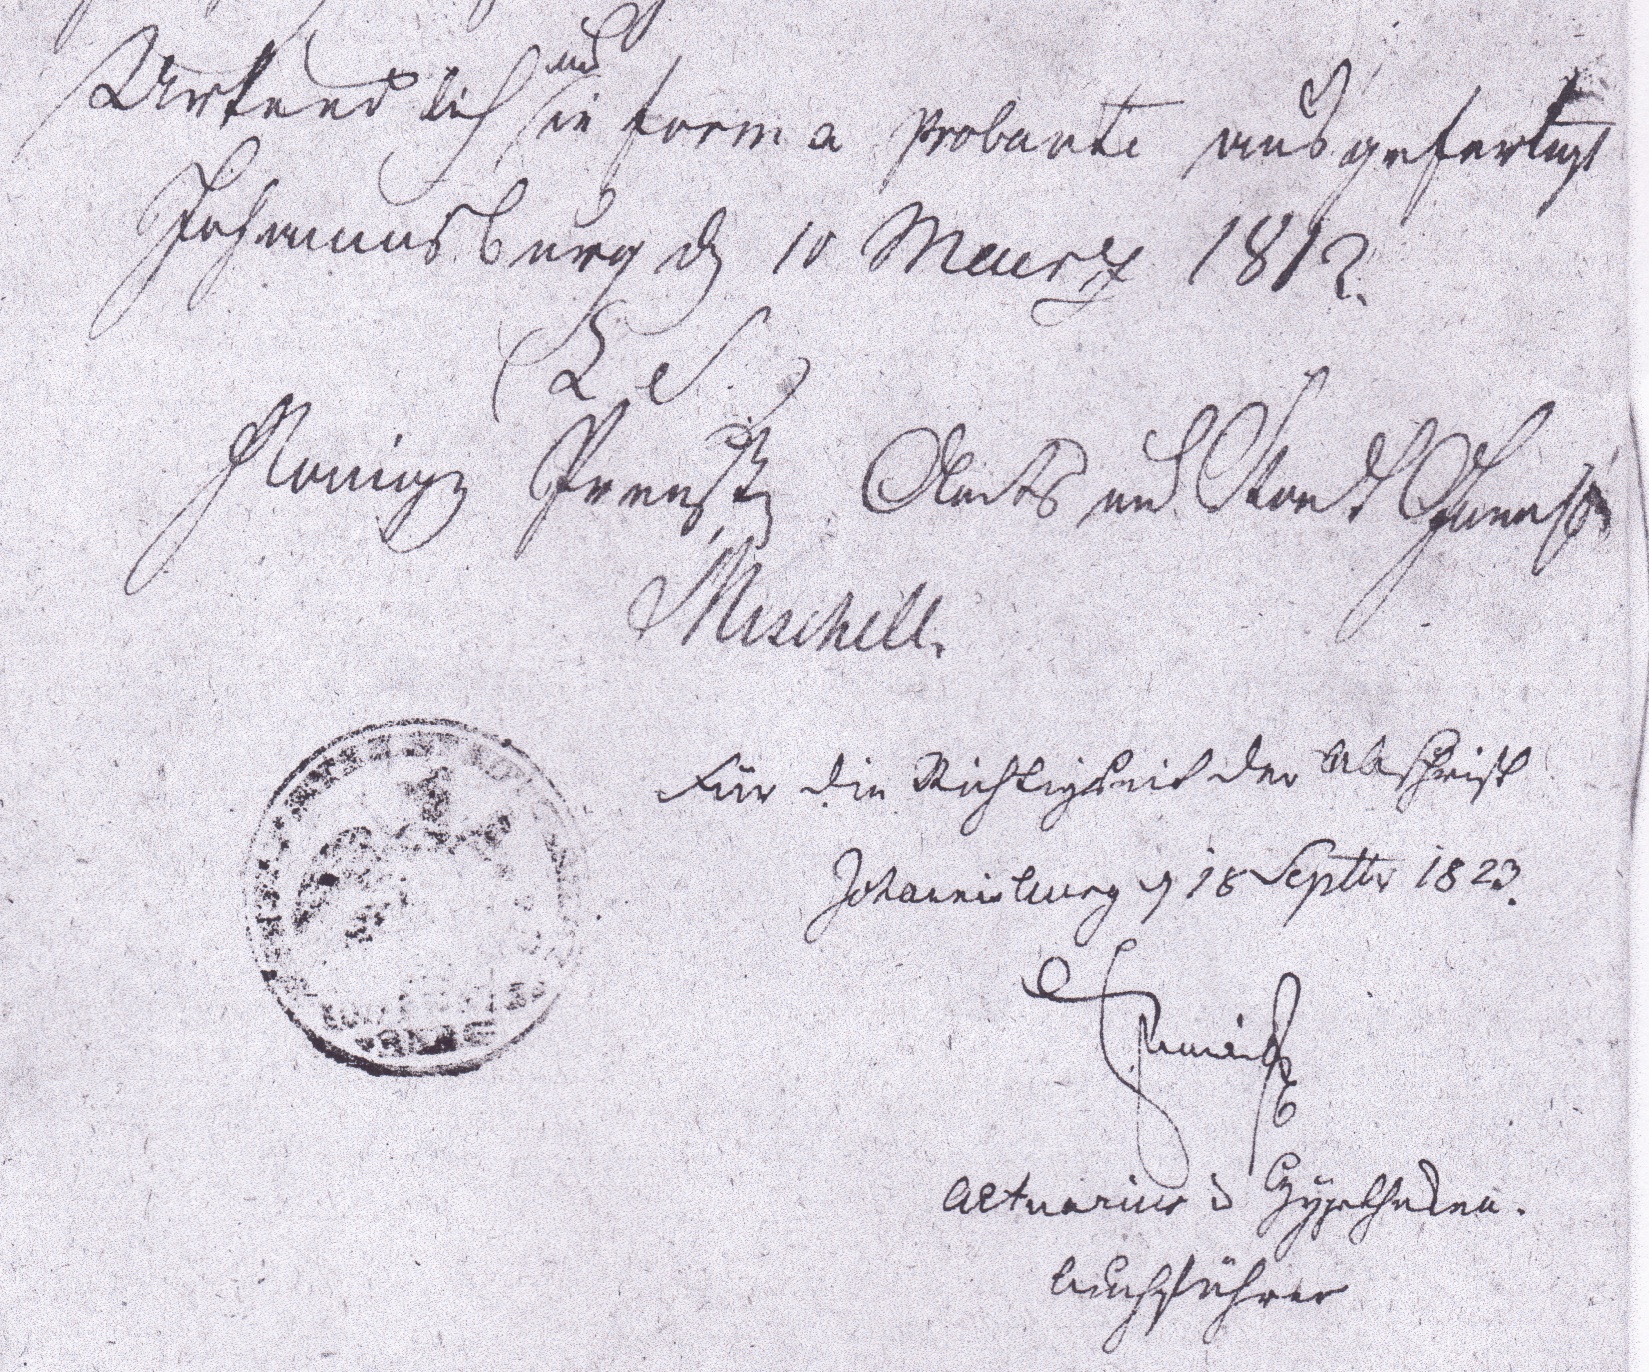 Urkundlich und in forma probante ausgefertigt
Johannisburg d 10 Maerz 1812.
(L. S.)
Königl Preuß Amts und Stadt Gericht
Mischell.
Für die Richtigkeit der Abschrift
Johannisburg d 18 Septbr 1823.
Actuarius u Hypotheken.
buchführer